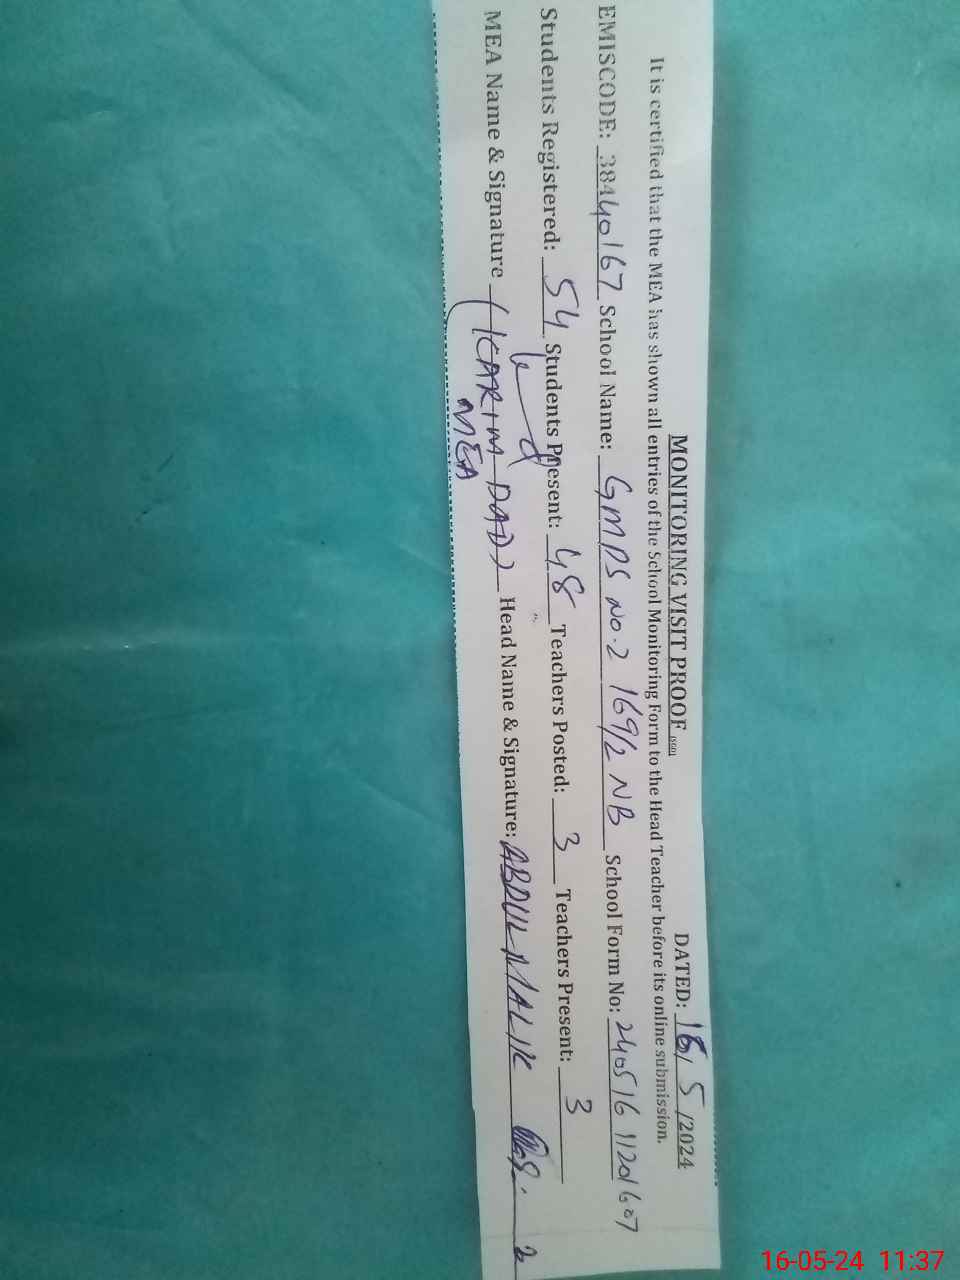 MONITORING VISIT PROOF
DATED: 16/ 5 /2024
It is certified that the MEA has shown all entries of the School Monitoring Form to the Head Teacher before its online submission.
EMISCODE: 38440167 School Name: GMPS No.2 169/2 NB School Form No: 240516 11201607
Students Registered: 54 Students Present: 48 Teachers Posted: 3 Teachers Present: 3
MEA Name & Signature (KARIM DAD) Head Name & Signature: ABDUL MALIK
MEA
16-05-24 11:37